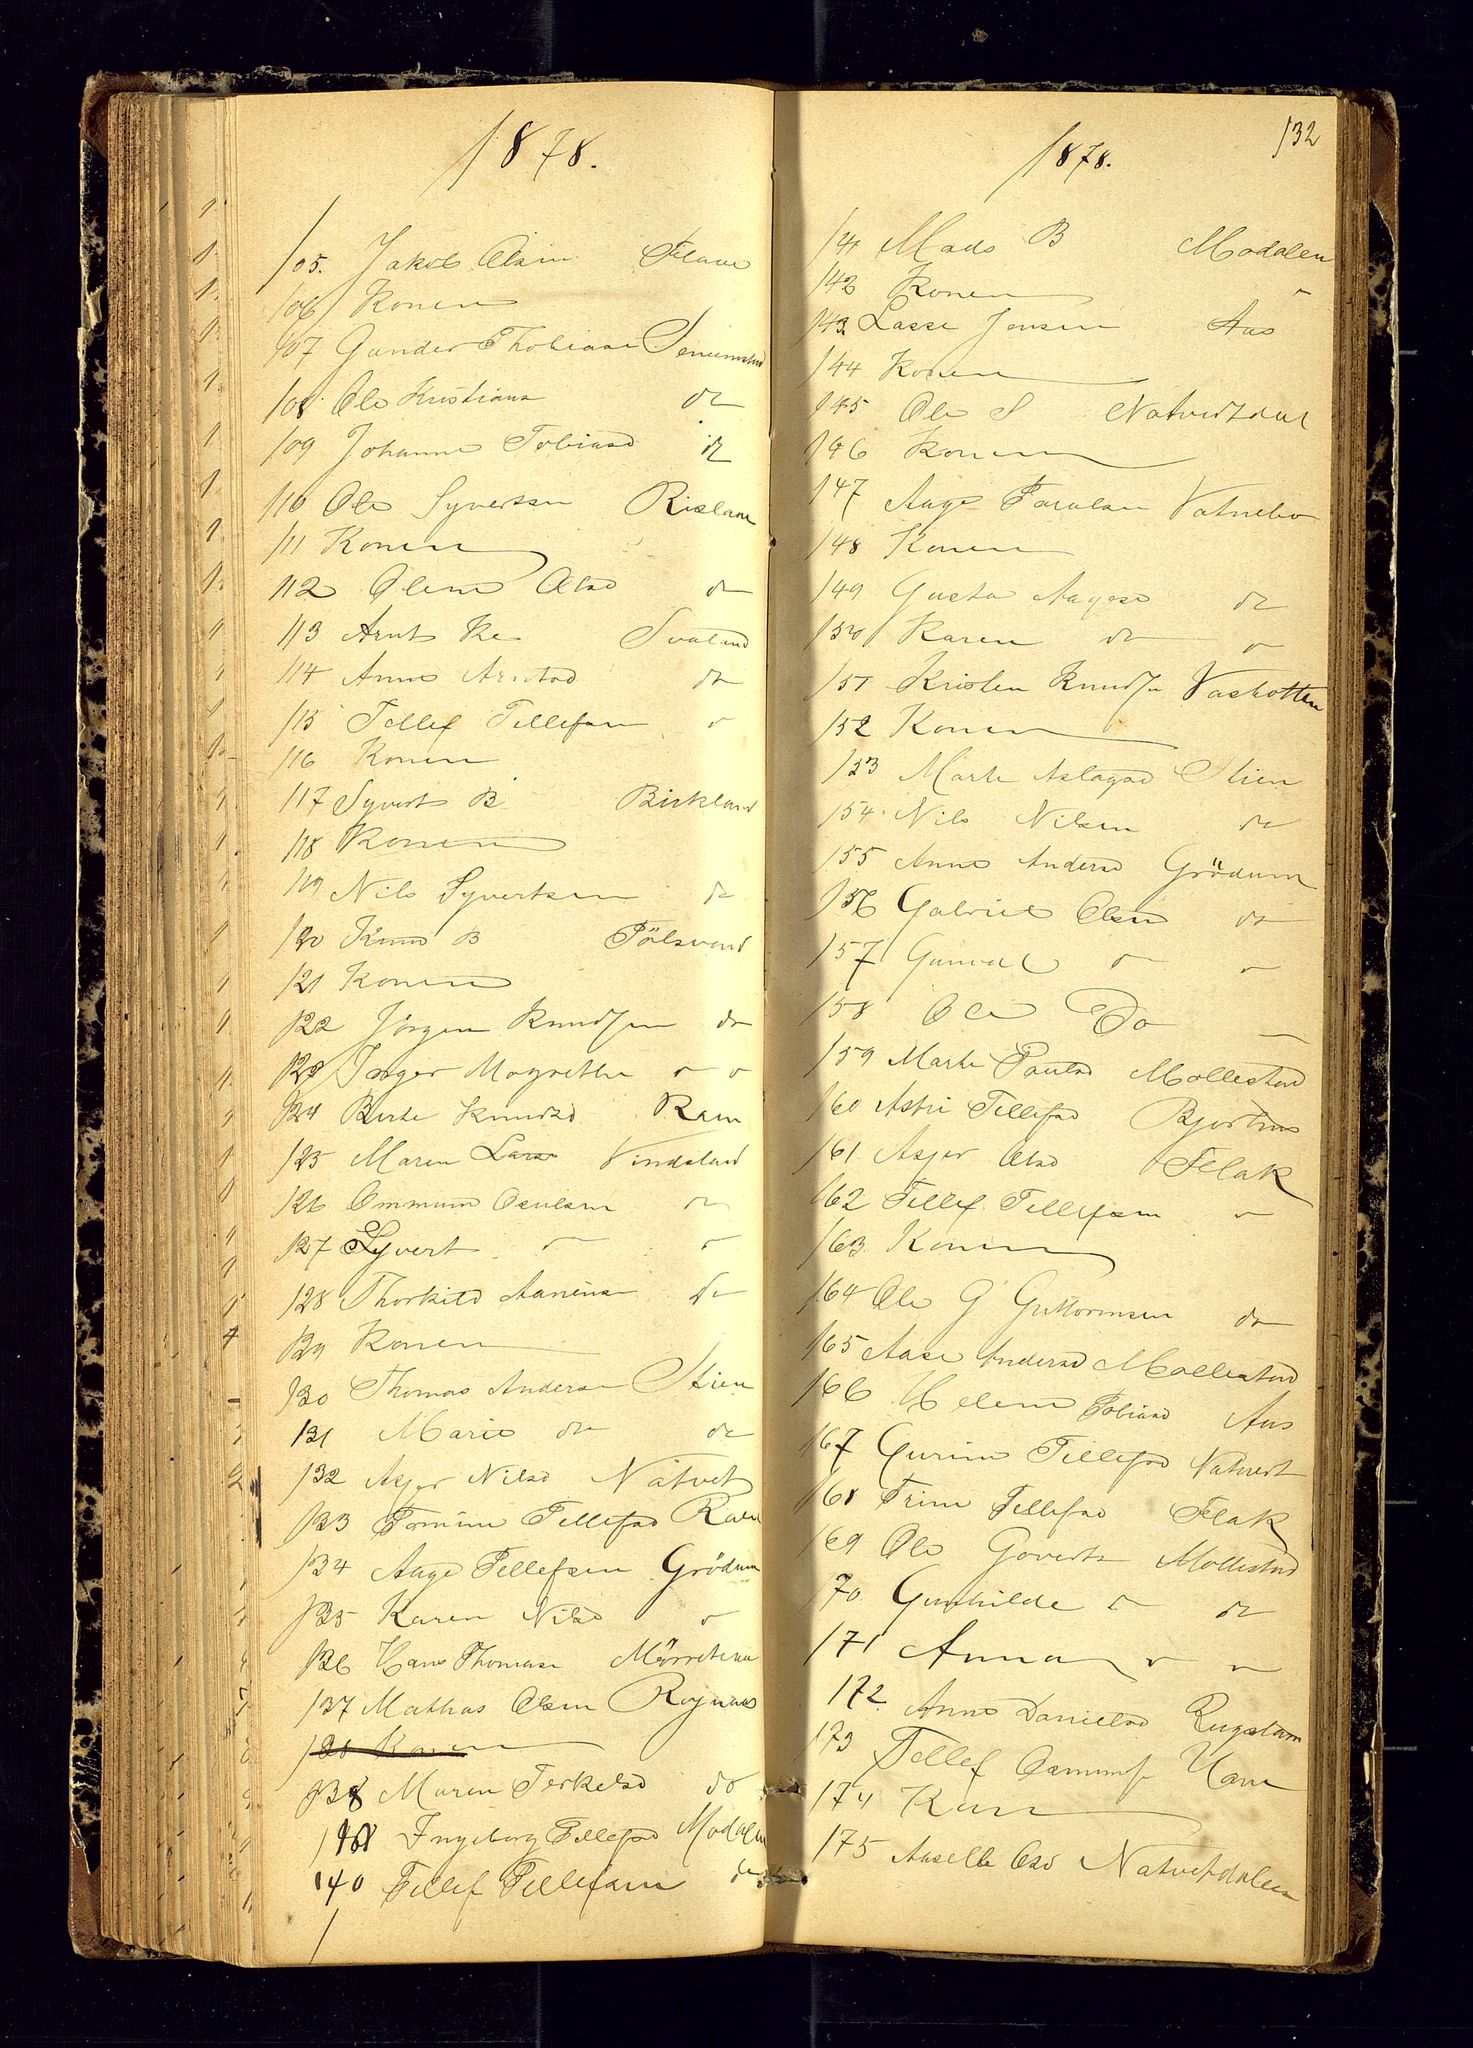 1878.
105. Jakob Olsen Flaae
106 Konen
107 Gunder Thobiase Senumstad
108 Ole Kristians do
109 Johanne Tobiasd do
110 Ole Syvertsen Rislaae
111 Konen
112 Olene Olsd do
113 Arnt Ke Svaland
114 Anne Arntsd do
115 Tellef Tellefsen "
116 Konen
117 Syvert B Birkland
118 Konen
119 Nils Syvertsen do
120 Knud B Tölsvand
121 Konen
122 Jörgen Knudsen do
123 Inger Magrethe " "
124 Berte Knudsd Ram
125 Maren Larsd Vindsland
126 Ommund Osulsen do
127 Syvert " "
128 Thorkild Aanensen do
129 Konen
130 Thomas Andersen Stien
131 Marie do do
132 Asjer Nilsd Natvet
133 Tomine Tellefsd
134 Aage Tellefsen Grödum
135 Karen Nilsd "
136 Hans Thomasen
137 Mathias Olsen Rojnaas
138 Konen
138 Maren Terkelsd do
Ingeborg Tellefsd Modalen
140 Tellef Tellefsen do
132
1878.
141 Mads B Modalen
142 Konen "
143. Lasse Jensen Aas
144 Konen
145 Ole S Natvedtdal
146 Konen
147 Aage Vatnebo
148 Konen
149 Gusta Aagesd do
150 Karen do "
151 Kristen Knudsen Vashotten
152 Konen
153 Marte Aslagsd Stien
154 Nils Nilsen do
155 Anne Andersd Grödum
156 Gabriel Olsen do
157 Gunval " "
158 Ole Do "
159 Marte Paulsd Mollestad
160 Astri Tellefsd
161 Asjer Olsd Flak
162 Tellef Tellefsen "
163 Konen
164 Ole G Guttormsen do
165 Aase Andersd Mollestad
166 Helene Tobiasd Aas
167 Gurine Tellefsd Natvedt
168 Trine Tellefsd Flak
169 Ole Goverts Mollestad
170 Gunhilde " do
171 Anna " "
172. Anne Danielsd Rugslaae
173 Tellef
174 Konen
175 Natvetdalen